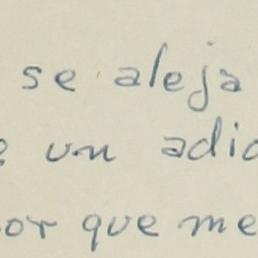 se aleja
un adio
or que me